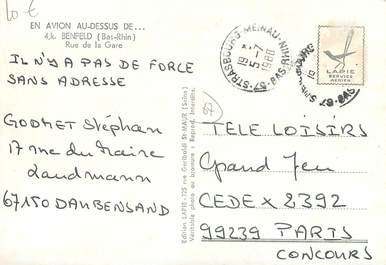 10 €
EN AVION AU-DESSUS DE...
4,k. BENFELD (Bas-Rhin)
Rue de la Gare
IL N'Y A PAS DE FORCE
SANS ADRESSE
GODMET Stéphan
17 rue du Maire
Landmann
67150 DAUBENSAND
Edition LAPIE - 125 rue Garibaldi St-MAUR (Seine)
Véritable photo au bromure - Reprod. Interdite.
67-STRASBOURG MEINAU-NIHR
5-7
1988
67-BAS
LAPIE
SERVICE
AERIEN
67
TELE LOISIRS
Grand Jeu
CEDEX 2392
99239 PARIS
CONCOURS